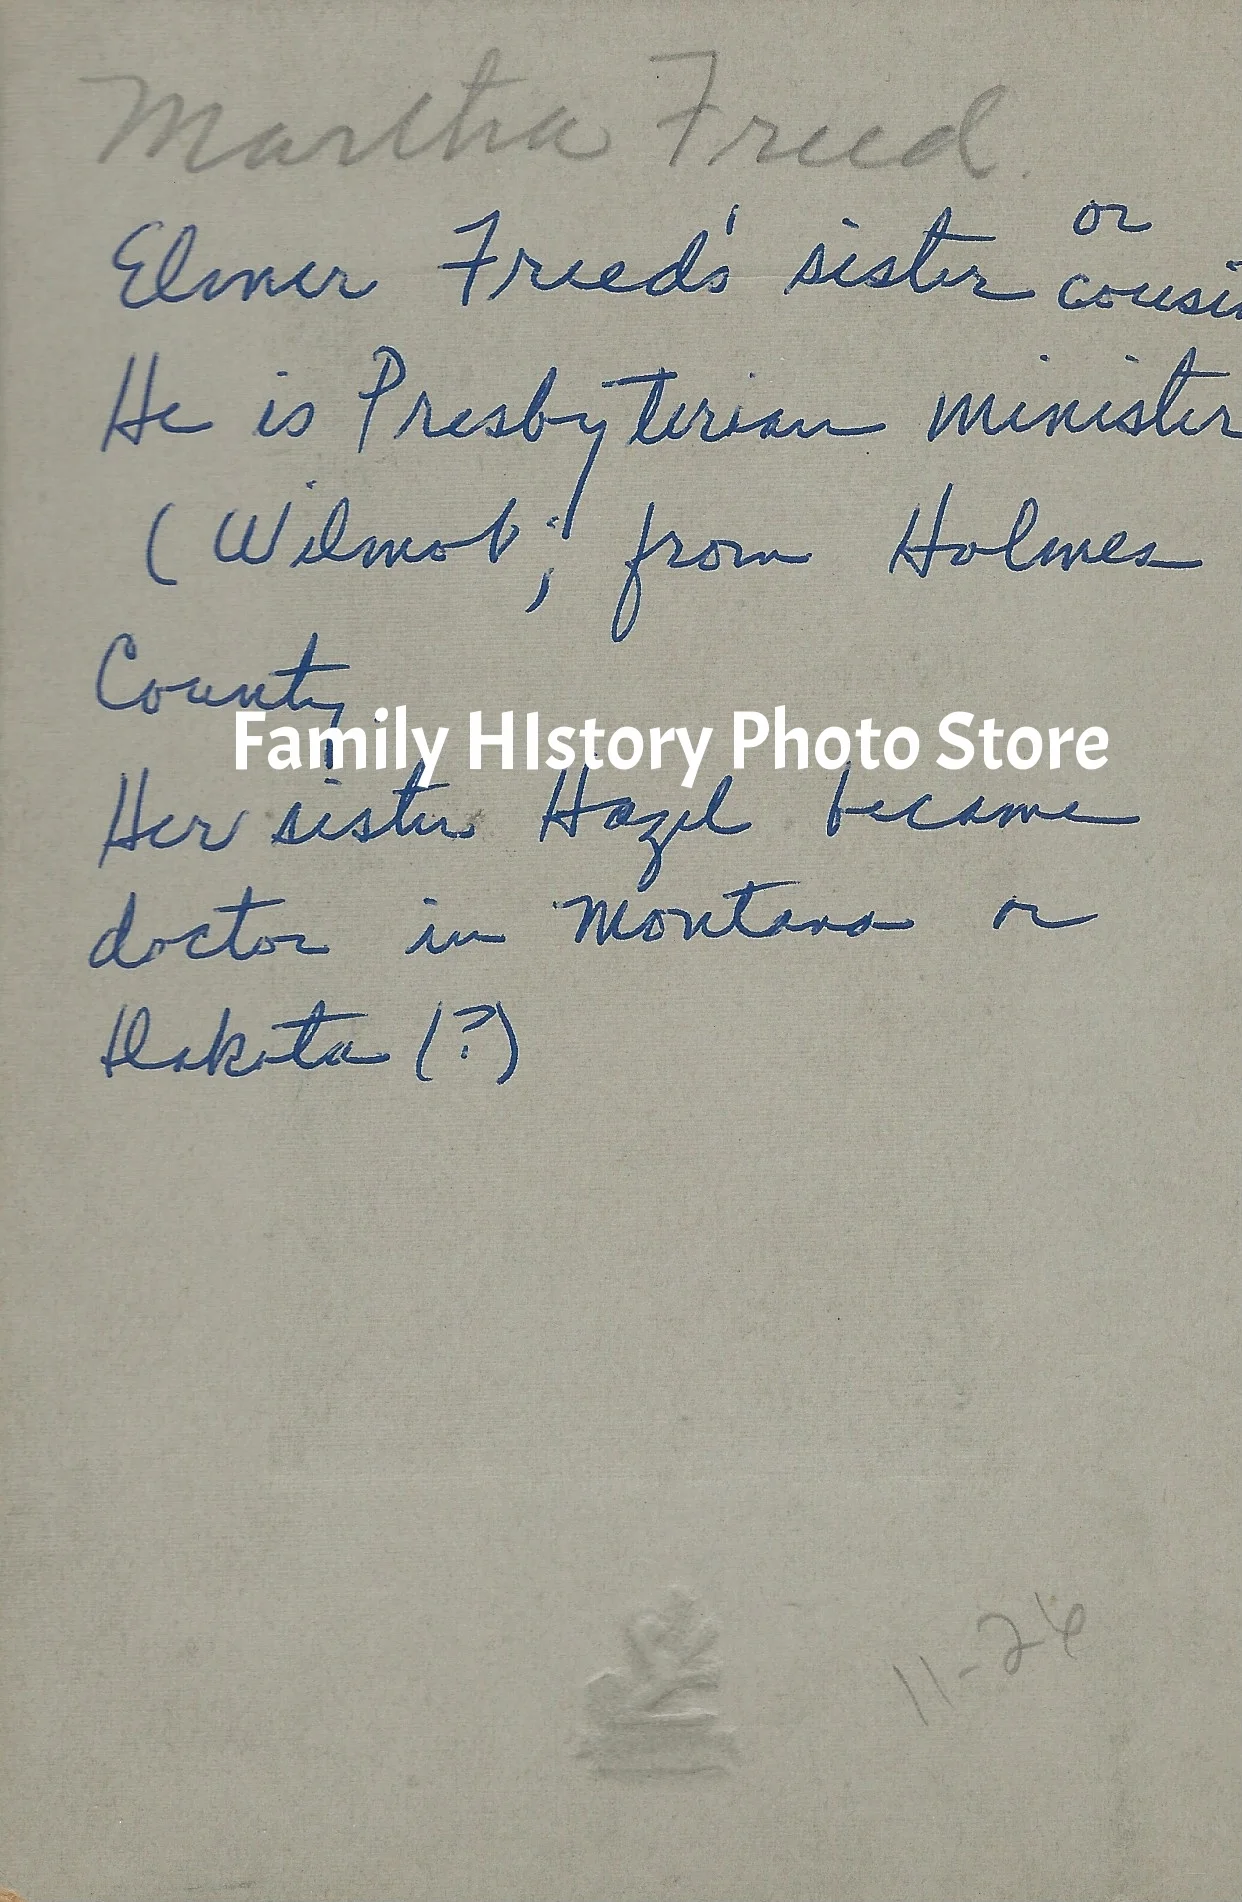 Martha Freed.
Elmer Freed's sister or cousin
He is Presbyterian minister
(Wilmot; from Holmes
County
Family HIstory Photo Store
Her sister Hazel became
doctor in Montana or
Dakota (?)
11-26